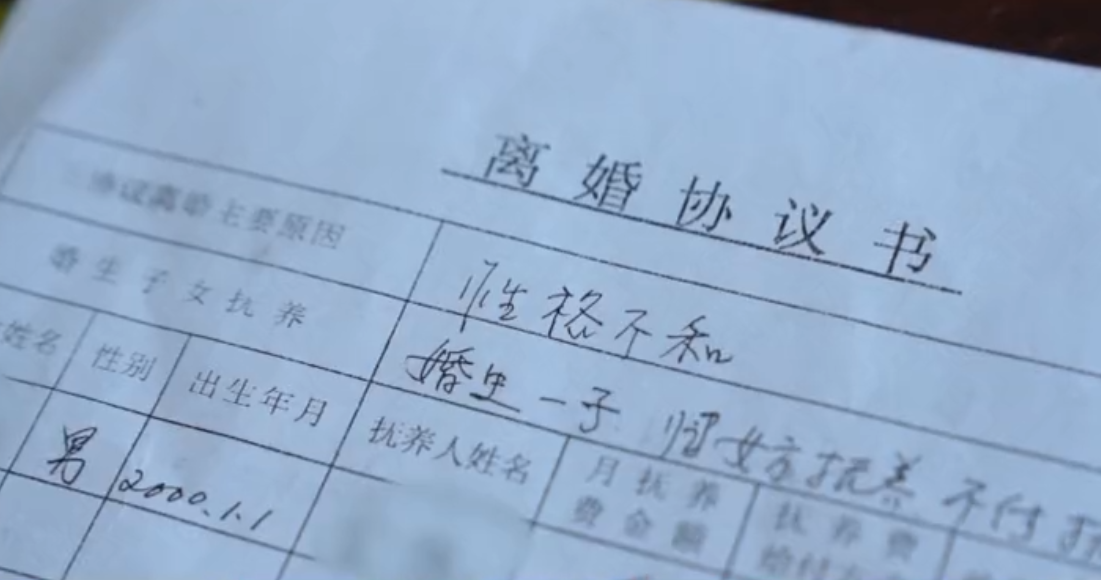 离婚协议书
协议离婚主要原因 性格不和
婚生子女抚养 婚生一子 归女方抚养 不付
姓名 性别 出生年月 抚养人姓名 月抚养费金额 抚养费给付
男 2000.1.1